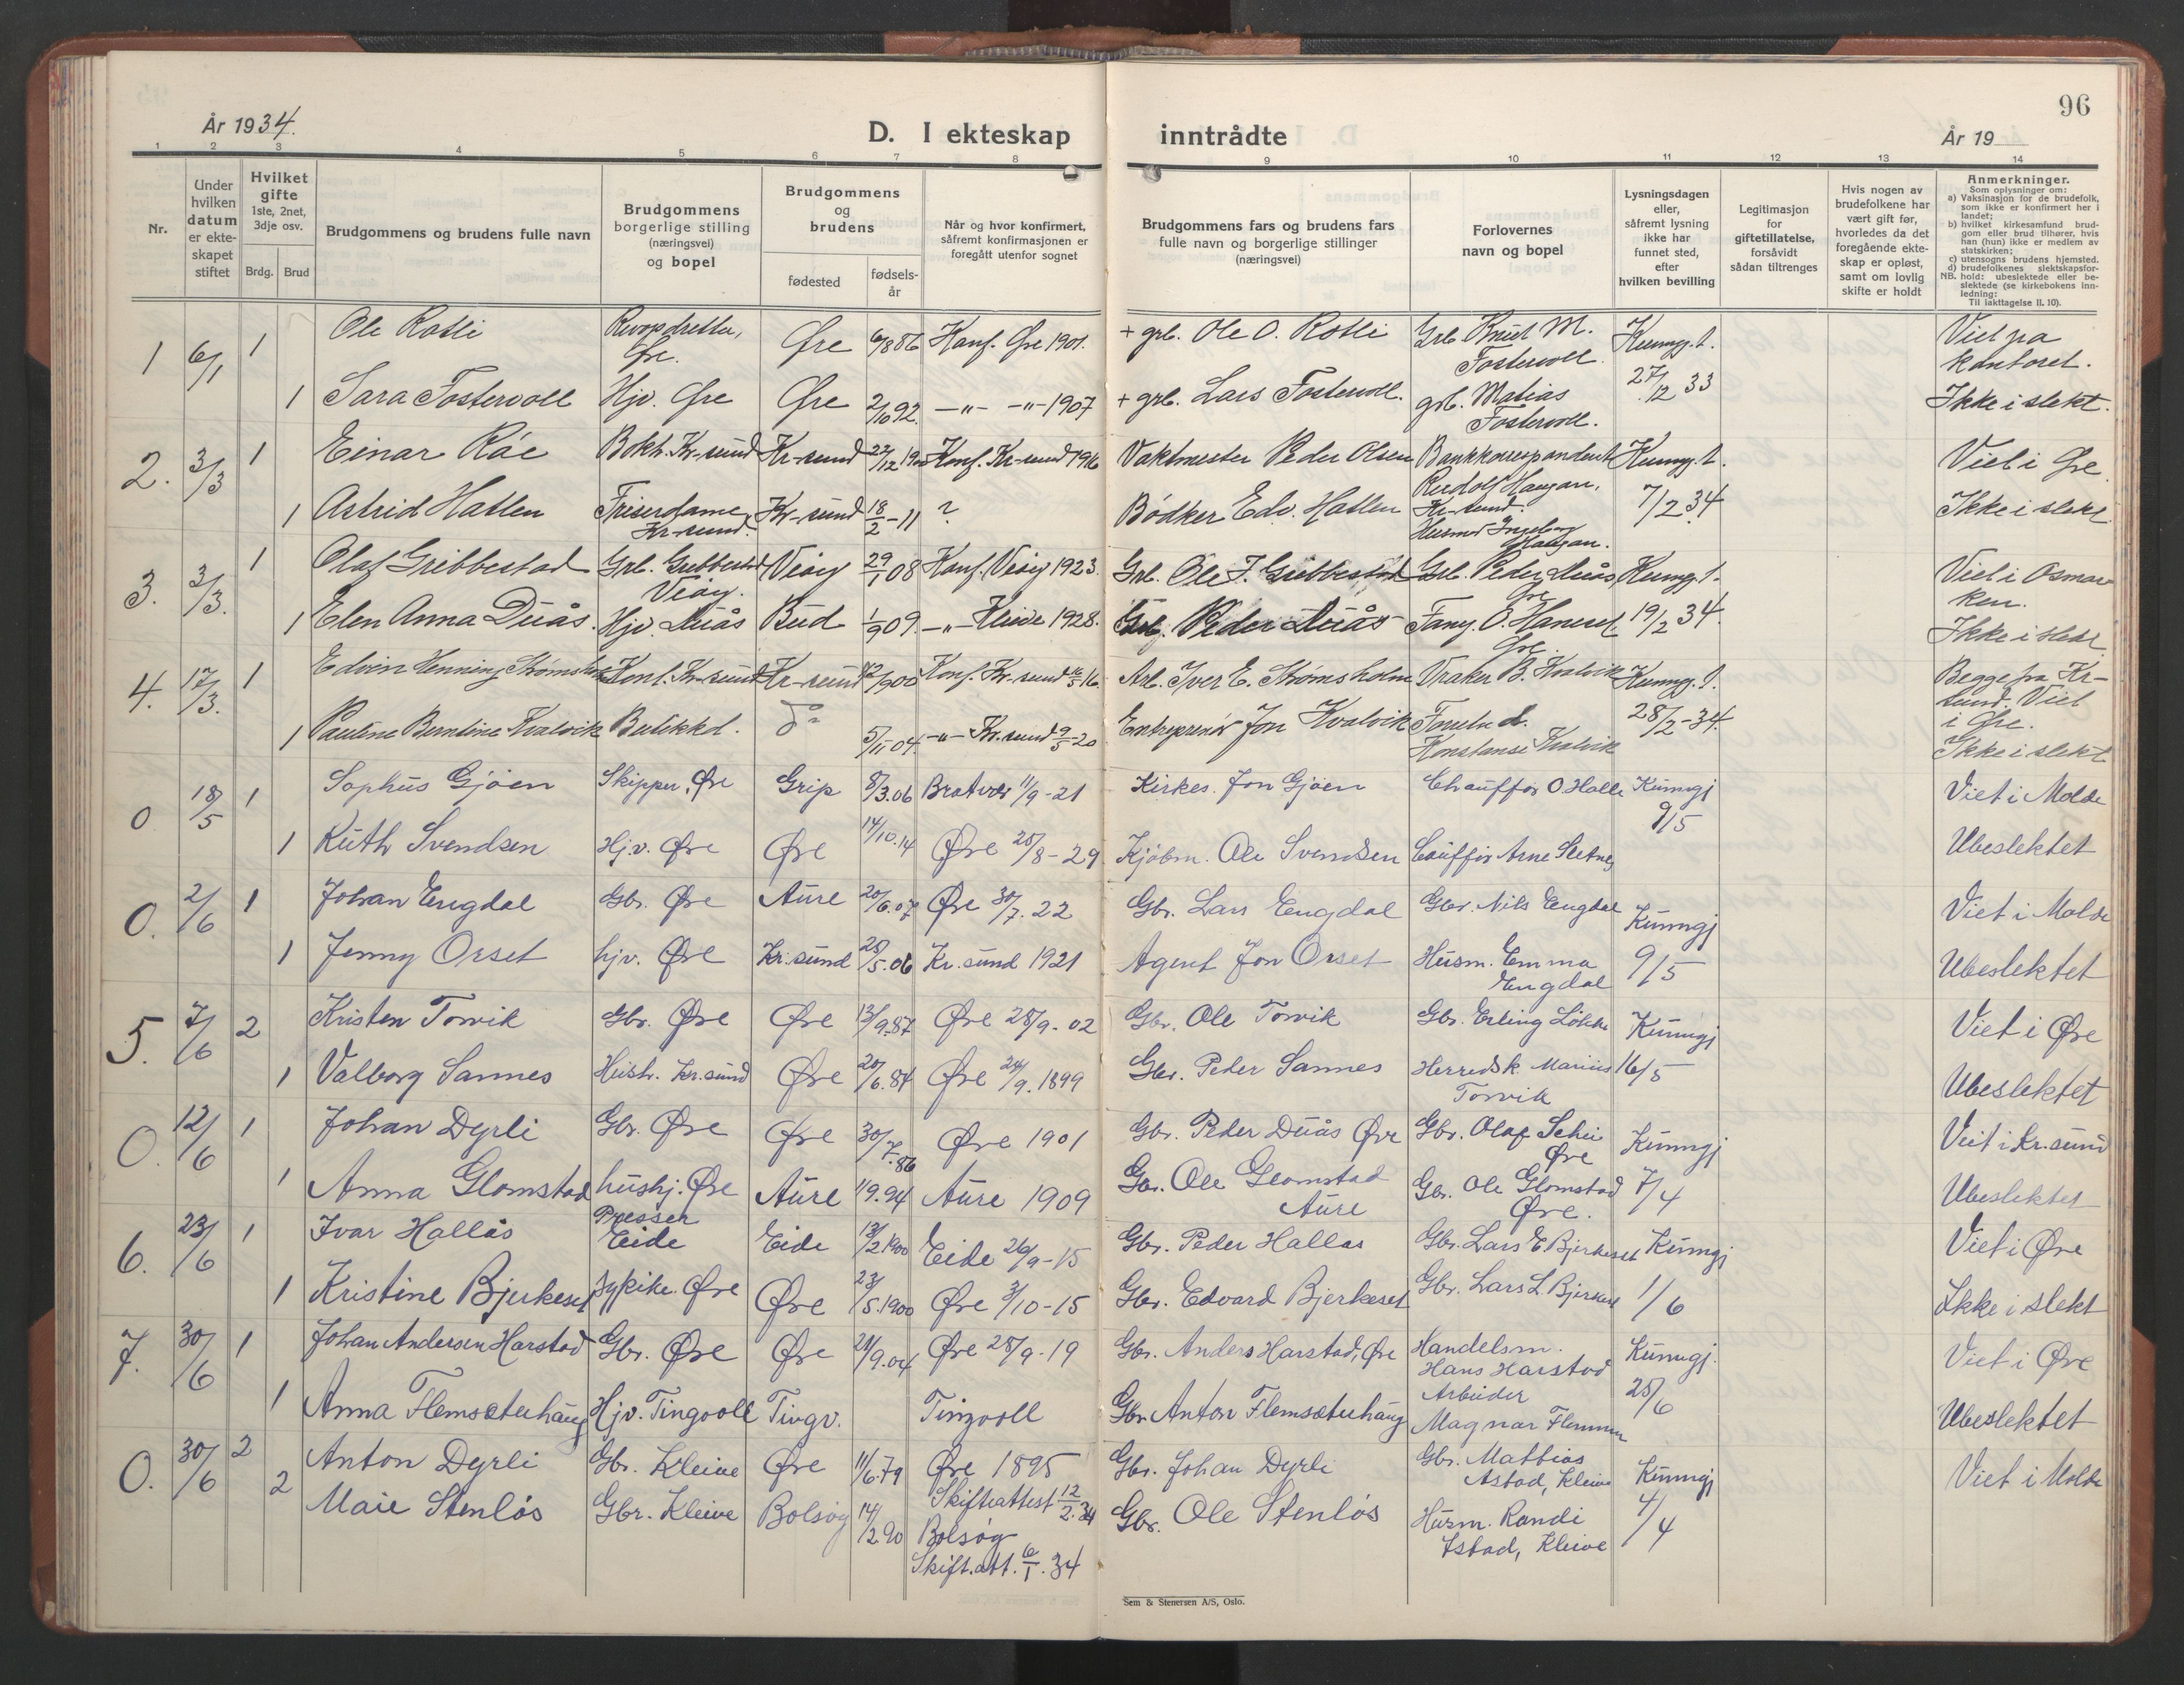 96
År 1934.
D. I ekteskap inntrådte
År 19
1 2 3 4 5 6 7 8 9 10 11 12 13 14
Nr.
Under hvilken datum er ekteskapet stiftet
Hvilket gifte 1ste, 2net, 3dje osv.
Brdg. Brud
Brudgommens og brudens fulle navn
Brudgommens borgerlige stilling (næringsvei) og bopel
Brudgommens og brudens
fødested
fødsels-år
Når og hvor konfirmert, såfremt konfirmasjonen er foregått utenfor sognet
Brudgommens fars og brudens fars fulle navn og borgerlige stillinger (næringsvei)
Forlovernes navn og bopel
Lysningsdagen eller, såfremt lysning ikke har funnet sted, efter hvilken bevilling
Legitimasjon for giftetillatelse, forsåvidt sådan tiltrenges
Hvis nogen av brudefolkene har vært gift før, hvorledes da det foregående ekteskap er opløst, samt om lovlig skifte er holdt
Anmerkninger.
Som oplysninger om:
a) Vaksinasjon for de brudefolk, som ikke er konfirmert her i landet;
b) hvilket kirkesamfund brudgom eller brud tilhører, hvis han (hun) ikke er medlem av statskirken;
c) utensogns brudens hjemsted.
d) brudefolkenes slektskapsforhold: ubeslektede eller beslektede (se kirkebokens innledning:
NB.
Til iakttagelse II. 10).
1 6/1 1 Ole Rotli Øre. Øre 6/8 86 Konf. Øre 1901. + grb. Ole O. Rotli Grb Knut M. Fostervoll Kunng. l. Viet på kontoret.
1 Sara Fostervoll Hjv. Øre Øre 2/10 92. —"— —"— 1907 + grb. Lars Fostervoll. grb. Matias Fostervoll. 27/12 33 Ikke i slekt.
2. 3/3 1 Einar Råe Bokh. Kr-sund Kr-sund Konf. Kr-sund 1916 Vaktmester Peder Olsen Bankkorrespondent Rudolf Haugan, Kr-sund. Kunng. l. Viet i Øre
1 Astrid Hatlen Friserdame, Kr-sund. Kr-sund 18/2-11 ? Bødker Edv. Hatlen Husmor Ingeborg Haugan. 7/2 34 Ikke i slekt
3. 3/3. 1 Olaf Gribbestad Grb. Gribbestad Veøy. Veøy 29/1 08 Konf. Veøy 1923. Grb. Ole J. Gribbestad Grb. Peder Duås, Øre Kunng. l. Viet i Osmarken.
1 Elen Anna Duås. Hjv. Duås Bud 1/9 09. —"— Kleive 1928. Grb. Peder Duås O. 19/2 34. Ikke i slekt
4. 17/3. 1 Edvin Henning Strømsholm Kont. Kr-sund Kr-sund Konf. Kr-sund 16. Arb. Iver E. Strømsholm Vraker B. Kvalvik Kunng. l. Begge på Kr-sund. Viet i Øre.
1 Pauline Berntine Kvalvik Butikkd. do 5/11 04. —"— Kr.sund 9/5-20 Entreprenør Jon Kvalvik Konstanse Kvalvik 28/2-34. Ikke i slekt
0 18/5 1 Sophus Gjøen Skipper, Øre Grip 8/3.06 Bratvær 11/9-21 Kirkes. Jon Gjøen Chauffør O. Halle Kunngj 9/5 Viet i Molde
1 Ruth Svendsen Hj.v. Øre Øre 14/10.14 Øre 25/8-29 Kjøbm. Ole Svendsen Arne Ubeslektet
0. 2/6 1 Johan Engdal Gbr. Øre Aure 20/6.07 Øre 30/7. 22 Gbr. Lars Engdal Gbr. Nils Engdal Kunngj Viet i Molde
1 Jenny Orset hjv. Øre Kr.sund 25/5.06 Kr.sund 1921 Agent Jon Orset Husm. Emma Engdal 9/5 Ubeslektet
5. 7/6 2 Kristen Torvik Gbr. Øre Øre 13/9.87 Øre 28/9-02 Gbr. Ole Torvik Gbr. Erling Løkke Kunngj Viet i Øre
1 Valborg Sannes Hush. Kr.sund Øre 20/6.84 Øre 24/9. 1899 Gbr. Peder Sannes Herredsk. Marius Torvik 16/5 Ubeslektet
0. 12/6 1 Johan Dyrli Gbr. Øre Øre 30/7.86 Øre 1901 Gbr. Peder Duås Øre Gbr. Olaf Schei Øre Kunngj Viet i Kr.sund
1 Anna Glomstad hushj. Øre Aure 1/9.94 Aure 1909 Gbr. Ole Glomstad Aure Gbr. Ole Glomstad Øre. 7/4 Ubeslektet
6. 23/6 1 Ivar Hallås Presser Eide Eide 13/2 1900 Eide 26/9-15 Gbr. Peder Hallås Gbr. Lars E. Bjerkeset Kunngj Viet i Øre
1 Kristine Bjerkeset Sypike. Øre Øre 23/5.1900 Øre 3/10-15 Gbr. Edvard Bjerkeset Gbr. Lars L. Bjerkeset 1/6 Ikke i slekt
7. 30/6 1 Johan Andersen Harstad Gbr. Øre Øre 21/9.04 Øre 28/9-19 Gbr. Anders Harstad, Øre Handelsm. Hans Harstad Kunngj. Viet i Øre
1 Anna Flemsæterhaug Hjv. Tingvoll Tingv. Tingvoll Gbr Anton Flemsæterhaug Arbeider Magnar 25/6 Ubeslektet
0. 30/6 2 Anton Dyrli Gbr. Kleive Øre 11/6.79 Øre 1895 Skifteattest 12/2.34 Gbr. Johan Dyrli Gbr. Mathias Istad, Kleive Kunngj Viet i Molde
2 Maie Stenløs Gbr. Kleive Bolsøy 14/2.90 Bolsøy Skift.att. 6/1.34 Gbr. Ole Stenløs Husm. Randi Istad, Kleive 4/4
Sem & Stenersen A/S, Oslo.